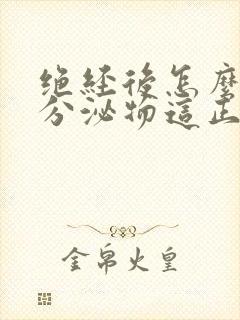 绝经后怎麽
分泌物這正
金帛火皇